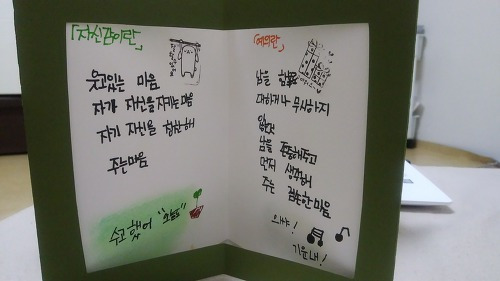 「자신감이란」
웃고있는 마음
자가 자신을 지키는 마음
자기 자신을 칭찬해
주는마음
수고했어 "오늘도"
「예의란」
남을 함부로
대하거나 무시하지
않고
남을 존중해주고
먼저 생각해
주는 겸손한마음
기운내!